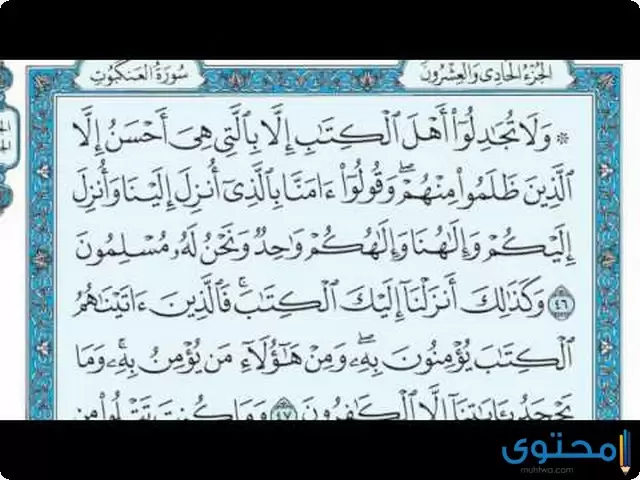 الجُزْءُ الحَادِى وَالعِشْرُونَ
سُورَةُ العَنكَبُوتِ
۞ وَلَا تُجَٰدِلُوٓا۟ أَهْلَ ٱلْكِتَٰبِ إِلَّا بِٱلَّتِى هِىَ أَحْسَنُ إِلَّا
ٱلَّذِينَ ظَلَمُوا۟ مِنْهُمْ ۖ وَقُولُوٓا۟ ءَامَنَّا بِٱلَّذِىٓ أُنزِلَ إِلَيْنَا وَأُنزِلَ
إِلَيْكُمْ وَإِلَٰهُنَا وَإِلَٰهُكُمْ وَٰحِدٌ وَنَحْنُ لَهُۥ مُسْلِمُونَ
٤٦ وَكَذَٰلِكَ أَنزَلْنَآ إِلَيْكَ ٱلْكِتَٰبَ ۚ فَٱلَّذِينَ ءَاتَيْنَٰهُمُ
ٱلْكِتَٰبَ يُؤْمِنُونَ بِهِۦ ۖ وَمِنْ هَٰٓؤُلَآءِ مَن يُؤْمِنُ بِهِۦ ۚ وَمَا
يَجْحَدُ بِـَٔايَٰتِنَآ إِلَّا ٱلْكَٰفِرُونَ ٤٧ وَمَا كُنتَ تَتْلُوا۟ مِن
محتوى
muhtwa.com